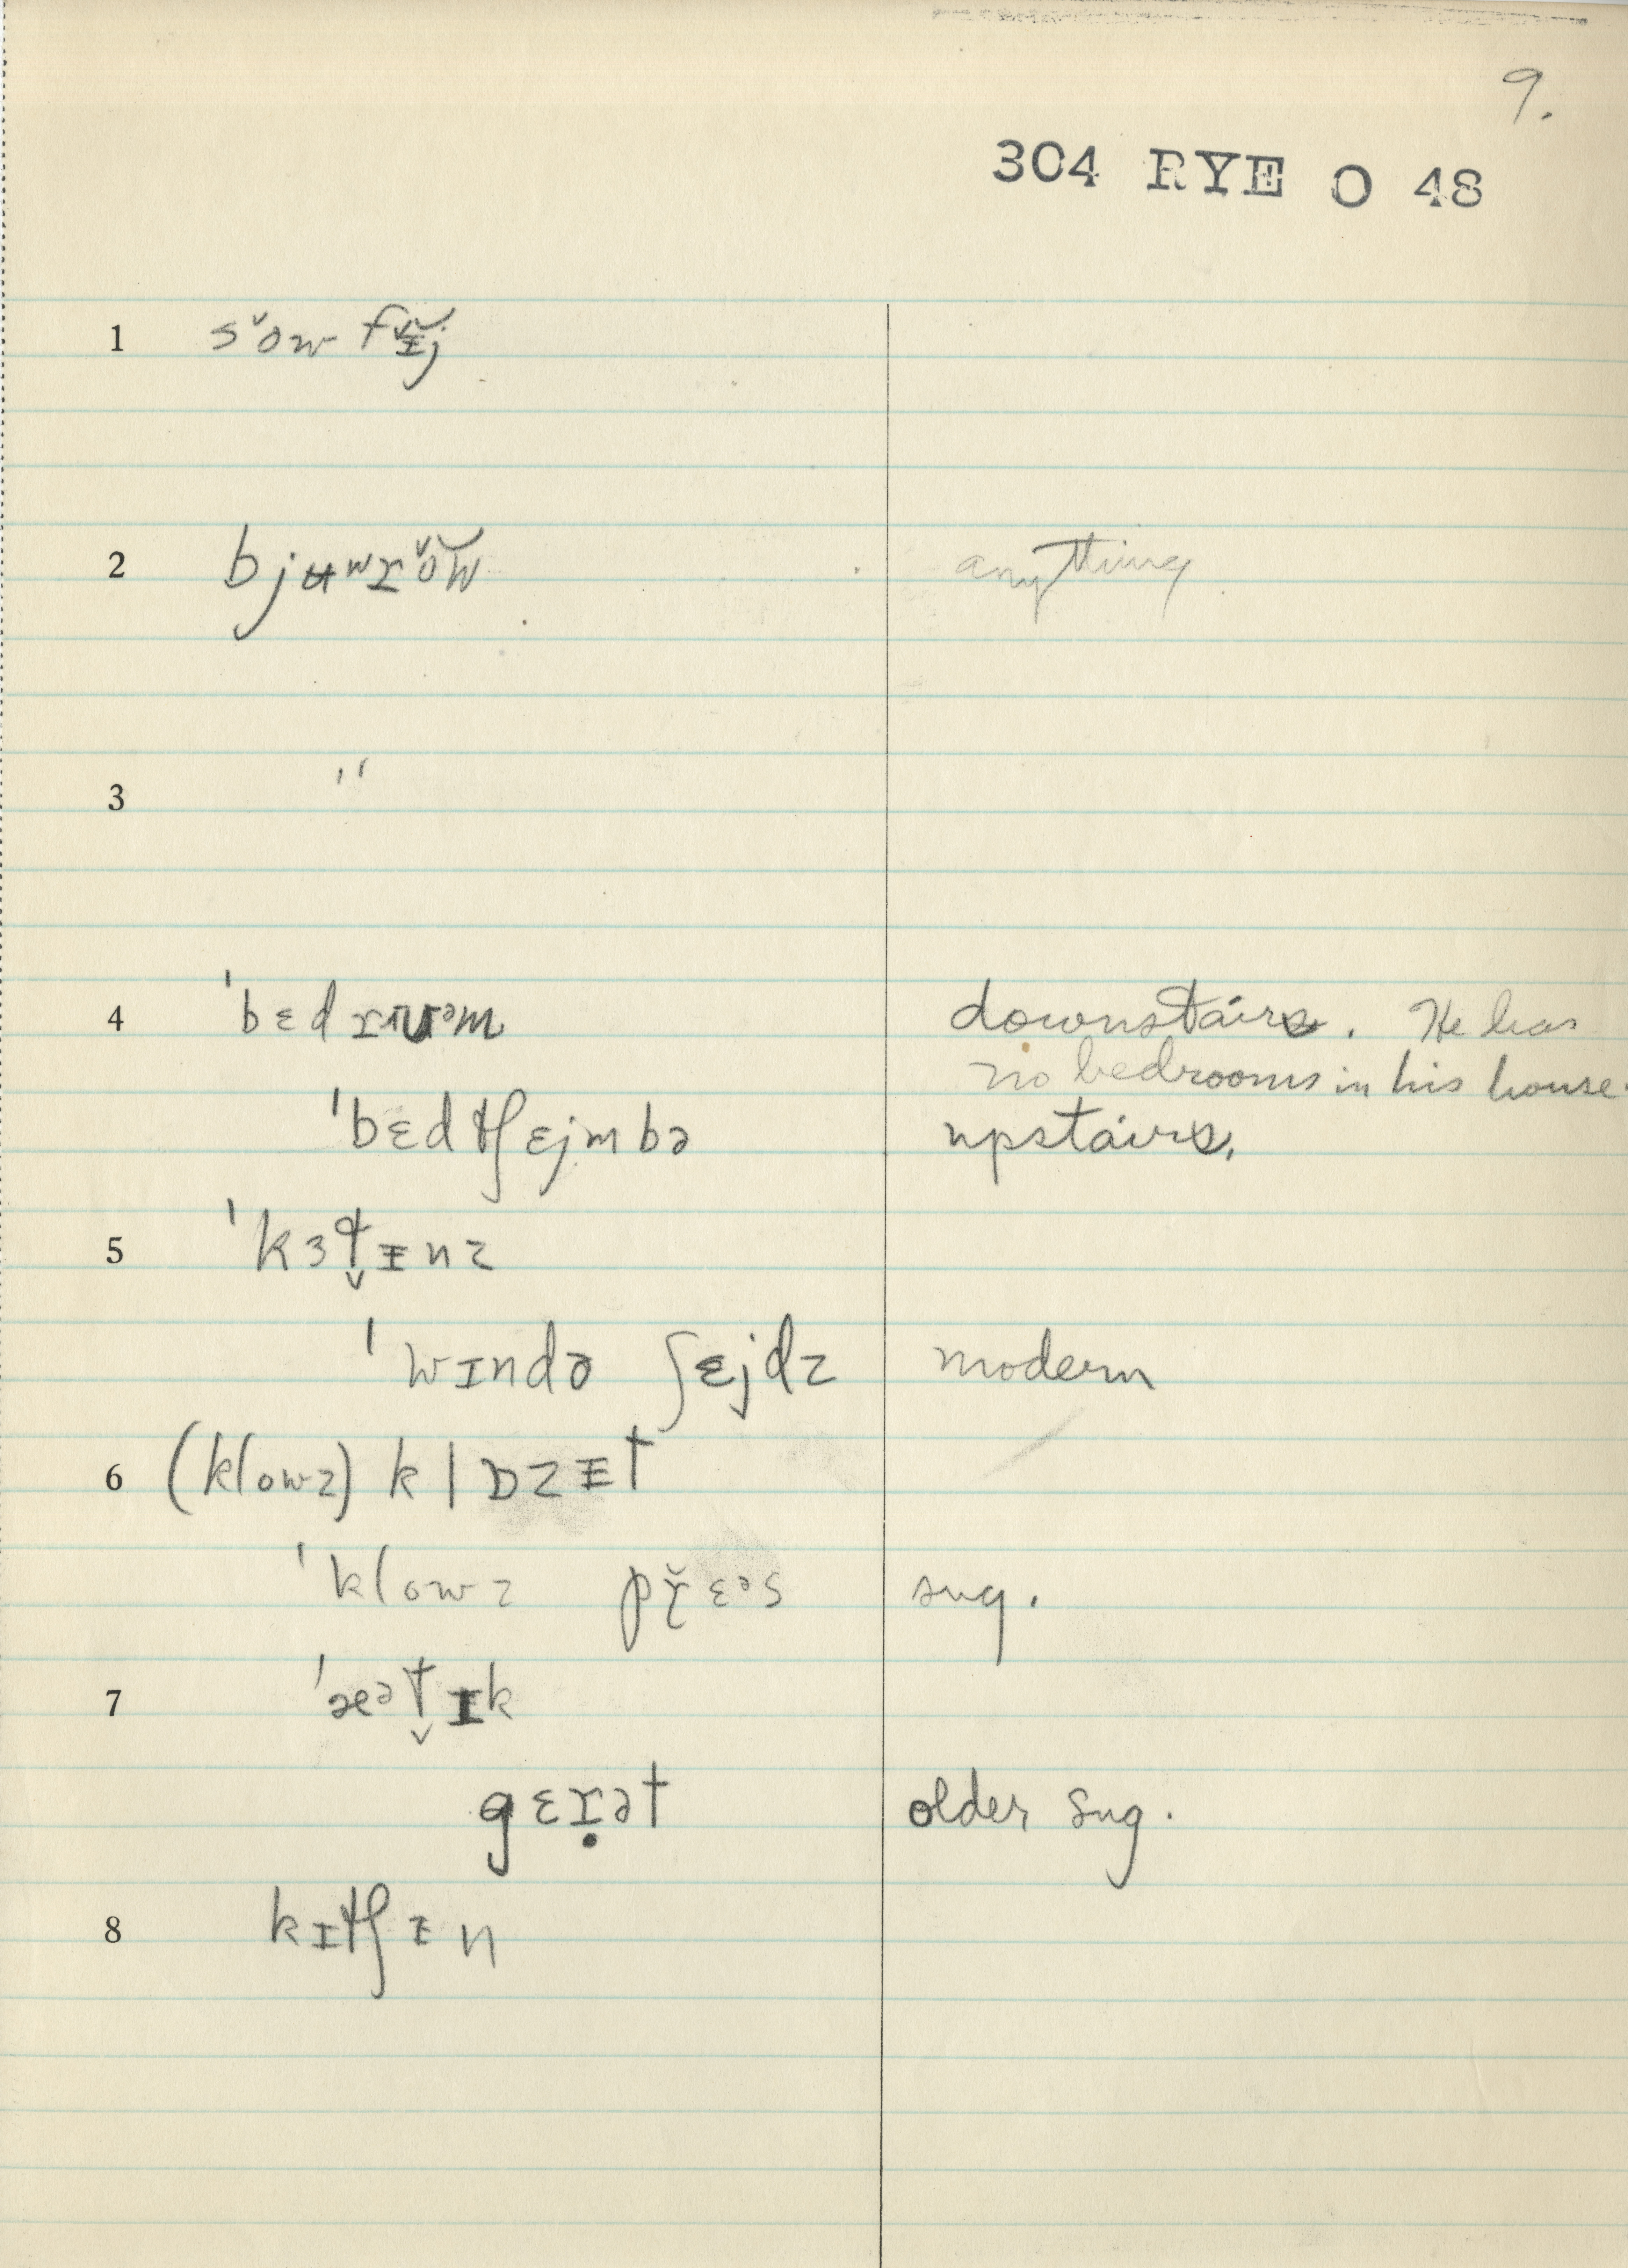 9.
304 RYE O 48
1 sˇow fɪ̵̆j
2 bjʉʷɪˇow̆ anything
3 ''
4 ˈbɛdɪʊᵊm downstairs. He has
no bedrooms in his house.
ˈbɛdtʃɛjmbə upstairs.
5 ˈkɜt̬ɪ̵nz
ˈwɪndə ʃɛjdz modern
6 (klowz) klɒzɪ̵t
ˈklowz pɪ̥̆ɛᵊs sug.
7 ˈæᵊt̬ɪk
gɛɪ̣ət older sug.
8 kɪtʃɪ̵n